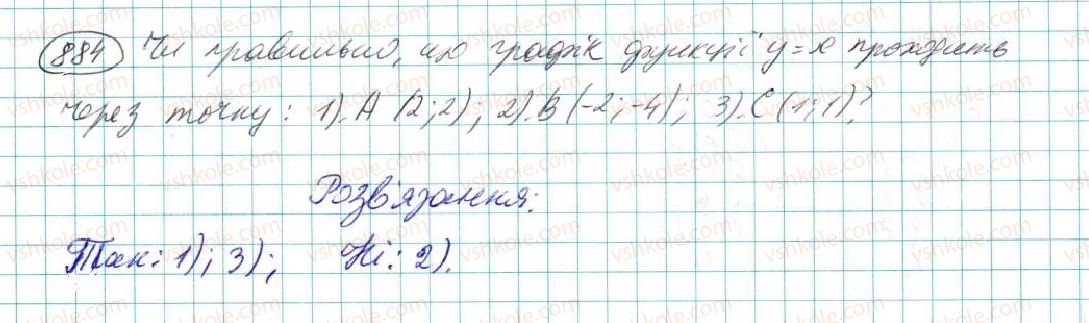 884 Чи правильно, що графік функції y=x проходить
через точку: 1). A (2;2); 2). B (-2;-4); 3). C (1;1)?
Розв'язання:
Так: 1); 3); Ні: 2).